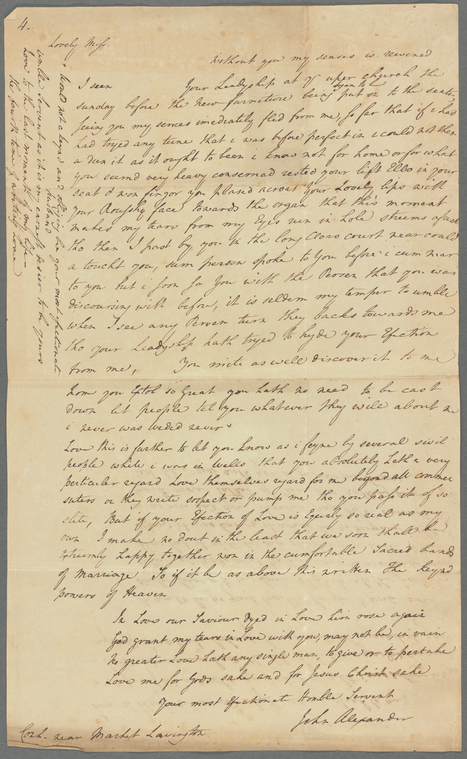 4.
Lovely Miss
Without you my senses is reveved
I seen your Leadyship at yr uper church the
sunday before the new furniture being began to put on to the seats,
seing you my senses imediately fled from me, so far that if i had
had tryed any tune that i was before perfect in i could not then
a dun it as it ought to been i know not for home or for what
you seemd very heavy consernad rested your left Elbo in your
seat & won fingor you plased across your Lovely lips with
your face towards the organ that this moment
maked my tears from my Eyes run in hole streems
tho then I past by you in the long Clows court near could
a toucht you, sum person spoke to you before i cum near
to you but i soon so you with the Person that you was
discoursing with before, it is seldem my temper to umble
when I see any Person turn they backs towards me
tho your Leadyship hath tryed to hyde your Efection
from me, You mite as well discover it to me
whom you Extol so great you hath no need to be cast
down let people tel you whatever they wile about me
i never was weded never
Love this is further to let you know as i feyne by several sivil
people while i was in Wells that you absolutely hath a very
perticular regard Love themselves regard for me beyond all commen
suters or they write sospect or pump me tho you pass it of so
slite, But if your Efection of Love is Equaly so real as my
own I make no dout in the least that we soon shall be
Extremly happy together won in the cumfortable Sacred bands
of Marriage So if it be as above this written The Keynd
powers of Heaven
In Love our Saviour dyed in Love him rose again
God grant my tears in Love with you, may not be, in vain
No greater Love hath any single man, to give or to pertake
Love me for Gods sake and for Jesus Christ sake
Your most Efectionate Humble Servent
John Alexander
near Market Lavington
I would not a bound and obliged be your most efectionate
husband
umble servend as it is my earnest desier to be yours
Love to the last moments of my life
the fourth time of writing home